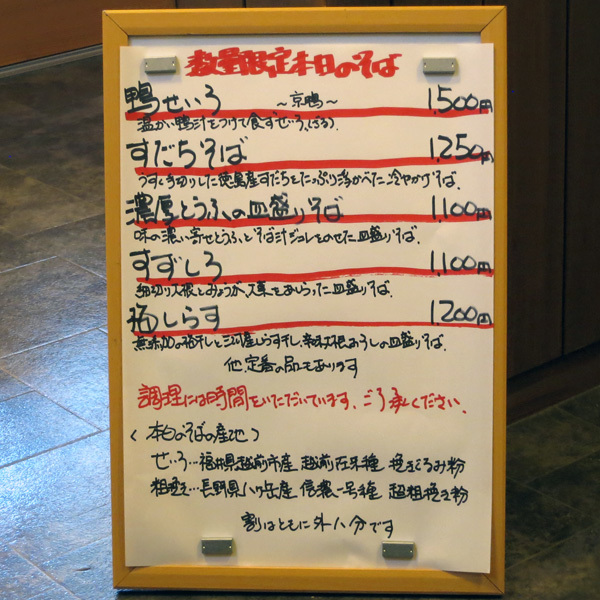 数量限定本日のそば
鴨せいろ ～京鴨～ 1,500円
温かい鴨汁をつけて食すせいろ(ざる).
すだちそば 1,250円
うすく手切りした徳島産すだちをたっぷり浮かべた冷やかけそば.
濃厚とうふの皿盛りそば 1,100円
味の濃い寄せとうふとそば汁ジュレをのせた皿盛りそば.
すずしろ 1,100円
細切り大根とみょうが、大葉をあしらった皿盛りそば.
梅しらす 1,200円
無添加の梅干しと三河産しらす干し、辛味大根おろしの皿盛りそば.
他定番の品もあります
調理には時間をいただいています、ご了承ください.
〈本日のそばの産地〉
せいろ…福井県越前市産 越前在来種 挽きぐるみ粉
粗挽き…長野県八ヶ岳産 信濃一号種 超粗挽き粉
割はともに外八分です